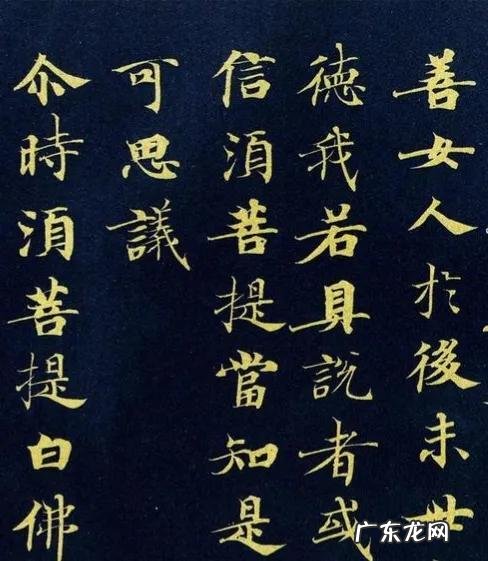 善女人於後末世
德我若具說者或
信須菩提當知是
可思議
尒時須菩提白佛
广东龙网